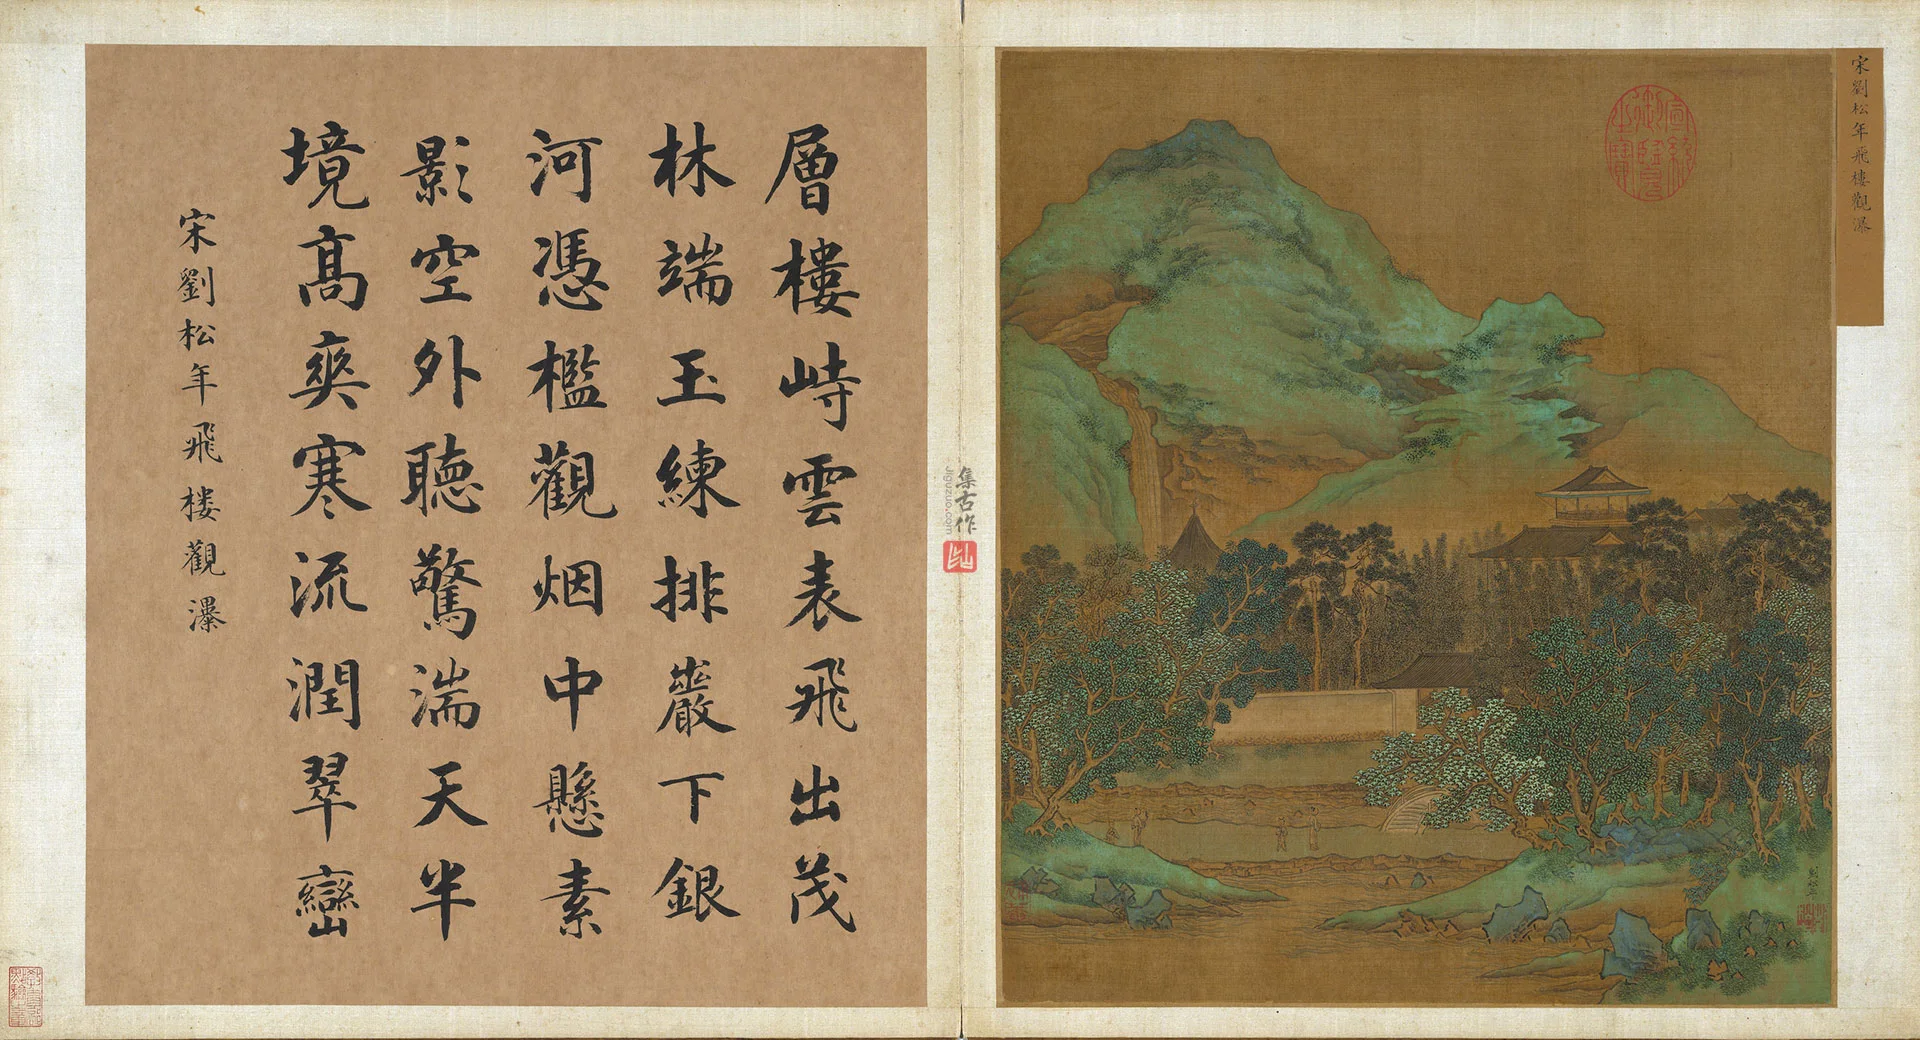 宋劉松年飛樓觀瀑
宣統御覽之寶
劉松年
集古作
jiguzuo.com
層樓峙雲表飛出茂
林端玉練排巖下銀
河憑檻觀烟中懸素
影空外聽驚湍天半
境高爽寒流潤翠巒
宋劉松年飛樓觀瀑